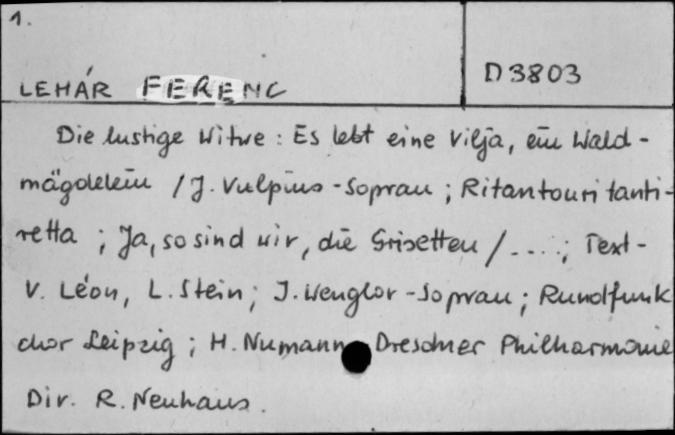 1.
LEHÁR FERENC
D 3803
Die lustige Witwe : Es lebt eine Vilja, ein Wald-
mägdelein / J. Vulpius - Sopran ; Ritantouri tanti-
retta ; Ja, so sind wir, die Grisetten / .... ; Text -
V. Léon, L. Stein ; I. Wenglor - Sopran ; Rundfunk
chor Leipzig ; H. Numann Dresdner Philharmonie
Dir. R. Neuhaus.